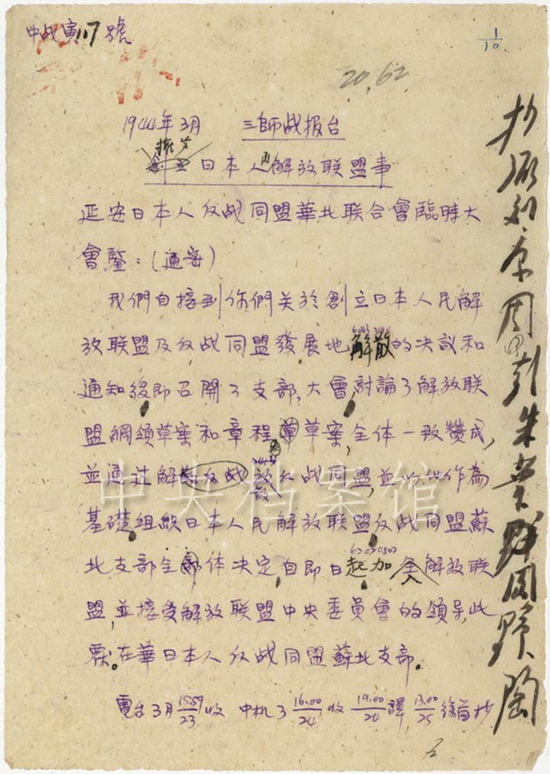 中战寅117號
1/10
20.62
1944年3月 三師战报台
日本人民解放联盟事
延安日本人反战同盟華北联合會臨時大
會鑒：(通密)
我們自接到你們关於創立日本人民解
放联盟及反战同盟發展地解散的决议和
通知後即召開了支部大會，討論了解放联
盟綱領草案和章程草案，全体一致赞成，
並通过解散反战同盟，並以此作為
基礎組織日本人民解放联盟，反战同盟蘇
北支部全体决定，自即日起加入解放联
盟，並接受解放联盟中央委員會的領导，此
票。在華日本人反战同盟蘇北支部。
電台3月1559/23收 中机3 16.00/24收 19.00/24譯 13.00/25 抄
中央档案馆